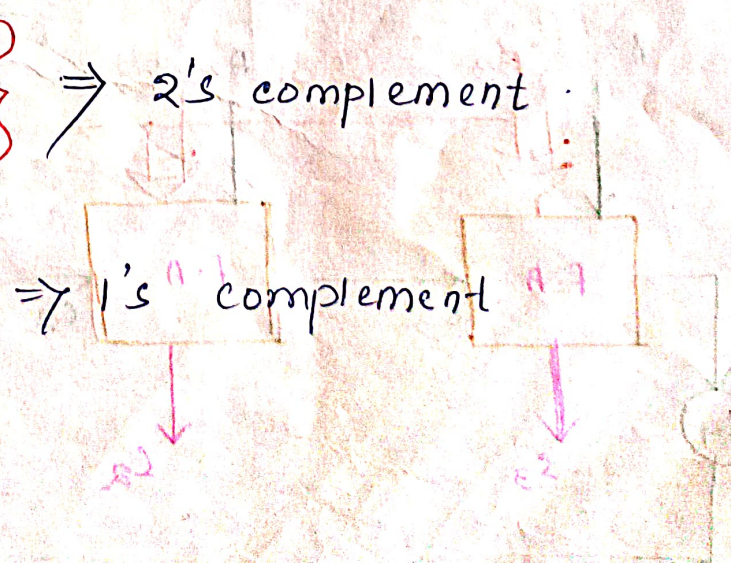 ⇒ 2's complement.
⇒ 1's complement